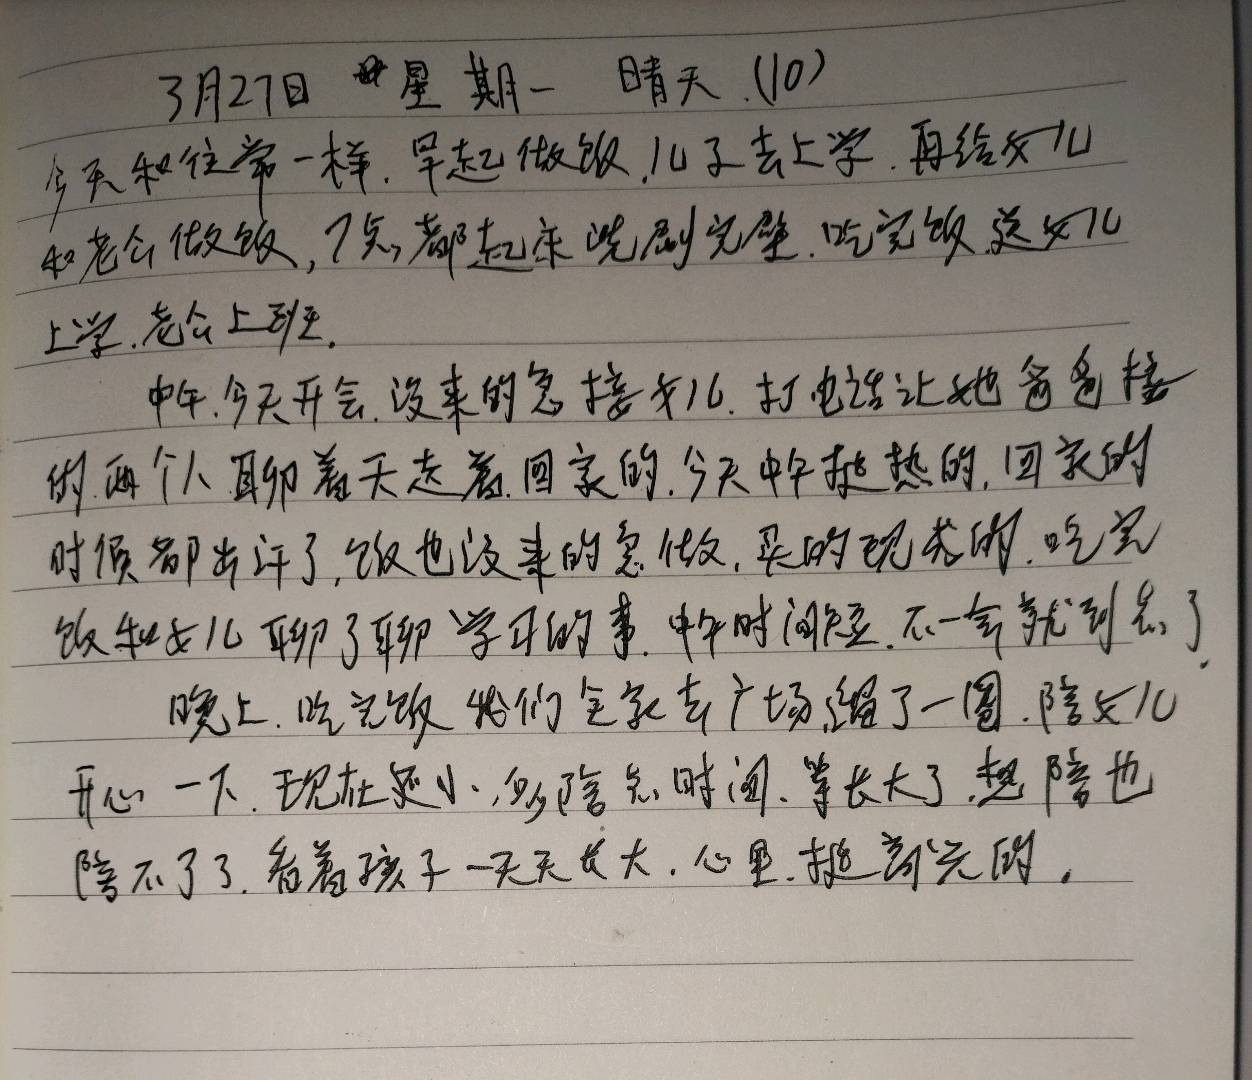 3月27日 星期一 晴天.(10)
今天和往常一样.早起做饭,儿子去上学.再给女儿
和老公做饭,7点,都起床洗刷完毕.吃完饭送女儿
上学.老公上班.
中午.今天开会.没来的急接女儿.打电话让她爸爸接
的.两个人聊着天走着.回家的.今天中午挺热的.回家的
时候都出汗了,饭也没来的急做.买的现成的.吃完
饭和女儿聊了聊学习的事.中午时间短.不一会就到点了.
晚上.吃完饭我们全家去广场,遛了一圈.陪女儿
开心一下.现在还小.,多陪点时间.等长大了.想陪也
陪不了了.看着孩子一天天长大.心里.挺的.